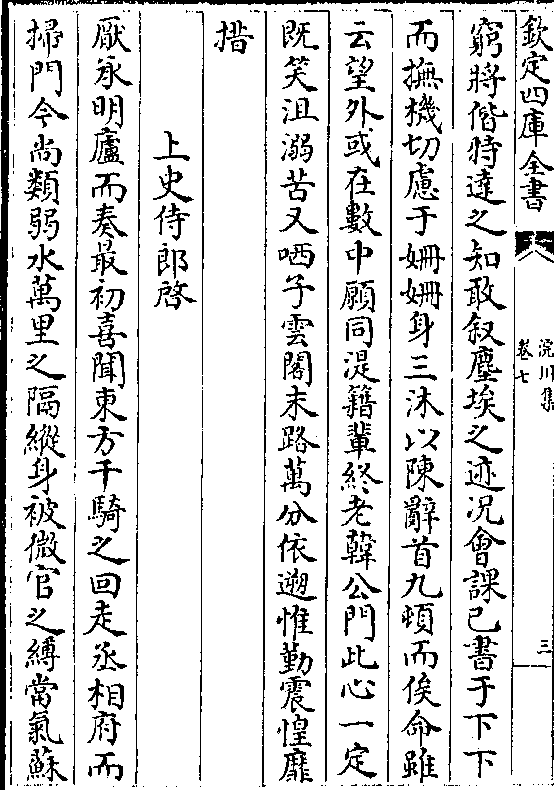 欽定四庫全書
浣川集
卷七
三
窮將偕特達之知敢叙塵埃之迹况會課已書于下下
而撫機切慮于姍姍身三沐以陳辭首九頓而俟命雖
云望外或在數中願同湜籍輩終老韓公門此心一定
既笑沮溺苦又哂子雲閣末路萬分依遡惟勤震惶靡
措
上史侍郎啓
厭承明廬而奏最初喜聞東方千騎之回走丞相府而
掃門今尚類弱水萬里之隔縱身被微官之縛當氣蘇